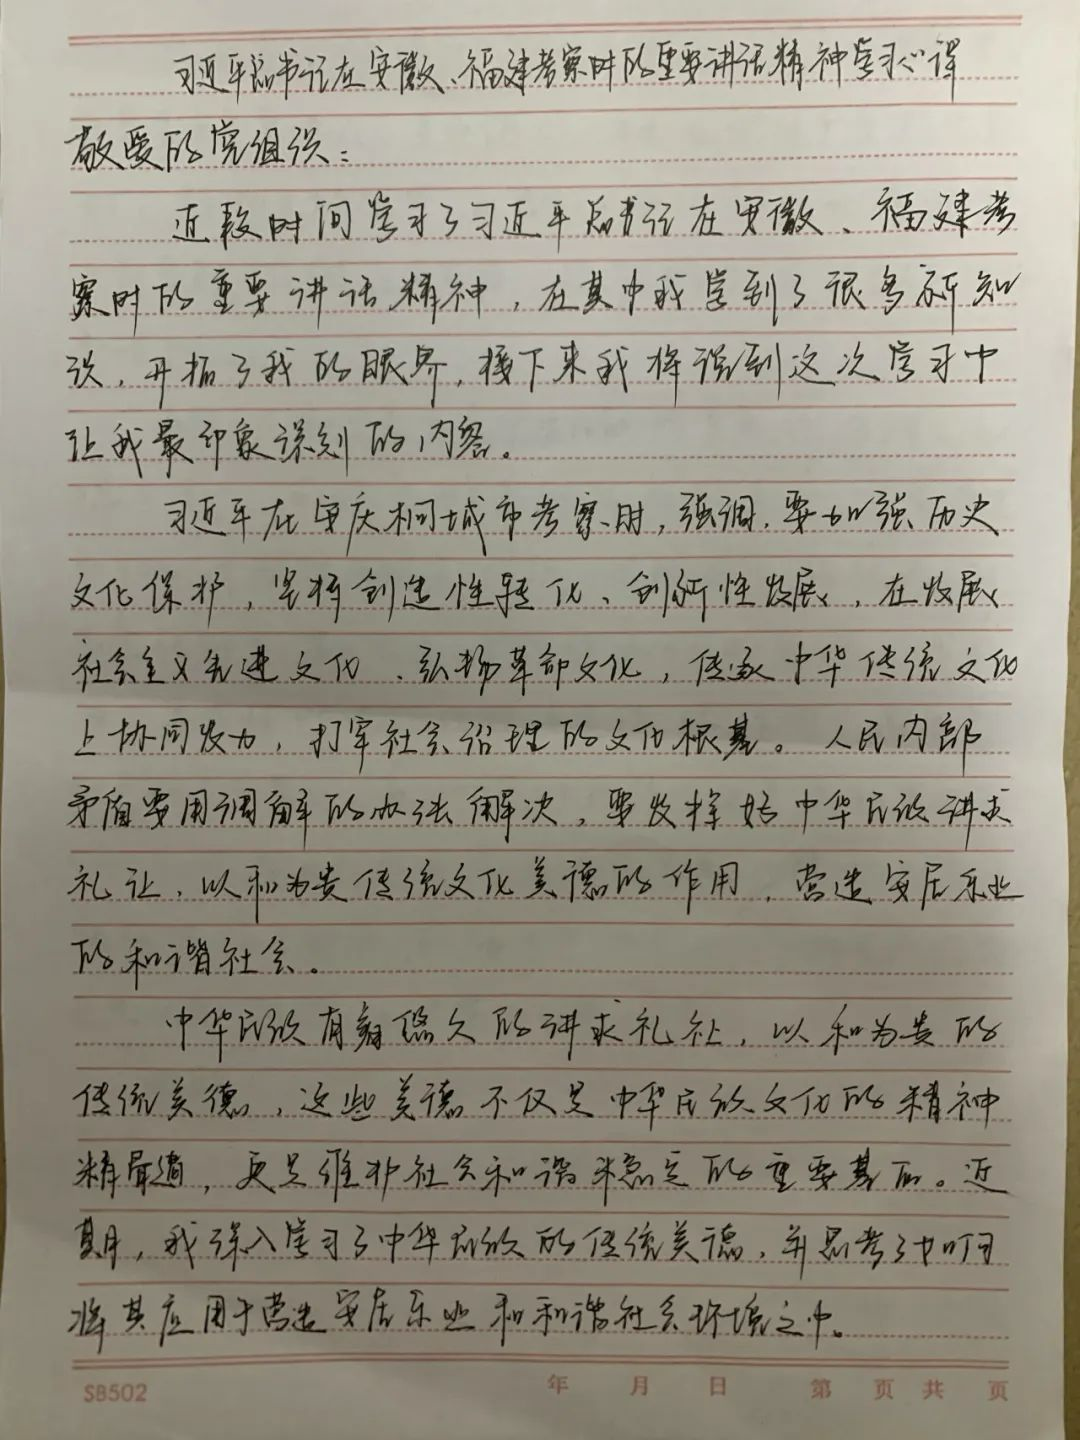 习近平总书记在安徽、福建考察时的重要讲话精神学习心得
敬爱的党组织：
近段时间学习了习近平总书记在安徽、福建考
察时的重要讲话精神，在其中我学到了很多新知
识，开拓了我的眼界，接下来我将说到这次学习中
让我最印象深刻的内容。
习近平在安庆桐城市考察时，强调，要加强历史
文化保护，坚持创造性转化、创新性发展，在发展
社会主义先进文化、弘扬革命文化，传承中华传统文化
上协同发力，打牢社会治理的文化根基。人民内部
矛盾要用调解的办法解决，要发挥好中华民族讲求
礼让，以和为贵传统文化美德的作用，营造安居乐业
的和谐社会。
中华民族有着悠久的讲求礼让，以和为贵的
传统美德，这些美德不仅是中华民族文化的精神
精髓，更是维护社会和谐稳定的重要基石。近
期，我深入学习了中华民族的传统美德，并思考了如何
将其应用于营造安居乐业和和谐社会环境之中。
SB502 年 月 日 第 页 共 页